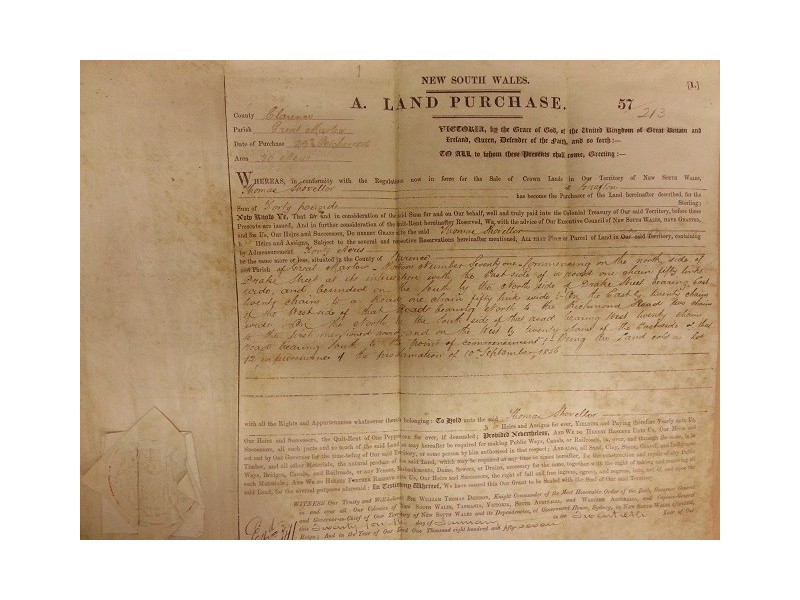 NEW SOUTH WALES.
[1.]
A. LAND PURCHASE. 57 213
County Clarence
Parish Great Marlow
Date of Purchase
Area
VICTORIA, by the Grace of God, of the United Kingdom of Great Britain and
Ireland, Queen, Defender of the Faith, and so forth:—
TO ALL to whom these Presents shall come, Greeting:—
WHEREAS, in conformity with the Regulations now in force for the Sale of Crown Lands in Our Territory of New South Wales,
Thomas Shoveller of Grafton
has become the Purchaser of the Land hereinafter described, for the
Sum of Forty pounds Sterling:
Now Know Ye, That for and in consideration of the said Sum for and on Our behalf, well and truly paid into the Colonial Treasury of Our said Territory, before these
Presents are issued, And in further consideration of the Quit-Rent hereafter Reserved, We, with the advice of Our Executive Council of New South Wales, have Granted,
and for Us, Our Heirs and Successors, Do hereby Grant unto the said Thomas Shoveller
Heirs and Assigns, Subject to the several and respective Reservations hereinafter mentioned, All that Piece or Parcel of Land in Our said Territory, containing
by Admeasurement Forty Acres
be the same more or less, situated in the County of Clarence
and Parish of Great Marlow - Portion Number Seventy one - Commencing on the north side of
Drake Street at its intersection with the East side of a road one chain fifty links
wide, and bounded on the South by the North side of Drake Street bearing East
twenty chains to a Road one chain fifty links wide - On the East by twenty chains
of the West side of that Road bearing North to the Richmond Road two chains
wide - On the North by the South side of that road bearing West twenty chains
to the first mentioned road and on the West by twenty chains of the East side of that
road bearing South to the point of commencement - Being the Land sold as lot
12 in pursuance of the proclamation of 10th September 1856
with all the Rights and Appurtenances whatsoever thereto belonging: To Hold unto the said Thomas Shoveller
Heirs and Assigns for ever, Yielding and Paying therefor Yearly unto Us
Our Heirs and Successors, the Quit-Rent of One Peppercorn for ever, if demanded; Provided Nevertheless, And We do Hereby Reserve unto Us, Our Heirs and
Successors, all such parts and so much of the said Land as may hereafter be required for making Public Ways, Canals, or Railroads, in, over, and through the same, to be
set out by Our Governor for the time-being of Our said Territory, or some person by him authorised in that respect; And also, all Sand, Clay, Stone, Gravel, and Indigenous
Timber, and all other Materials, the natural produce of the said Land, which may be required at any time or times hereafter, for the construction and repair of any Public
Ways, Bridges, Canals, and Railroads, or any Fences, Embankments, Dams, Sewers, or Drains, necessary for the same, together with the right of taking and removing all
such Materials; And We do Hereby Further Reserve unto Us, Our Heirs and Successors, the right of full and free ingress, egress, and regress, into, out of, and upon the
said Land, for the several purposes aforesaid: In Testimony Whereof, We have caused this Our Grant to be Sealed with the Seal of Our said Territory.
WITNESS Our Trusty and Well-beloved Sir William Thomas Denison, Knight Commander of the Most Honorable Order of the Bath, Governor General
in and over all Our Colonies of New South Wales, Tasmania, Victoria, South Australia, and Western Australia, and Captain-General
and Governor-in-Chief of Our Territory of New South Wales and its Dependencies, at Government House, Sydney, in New South Wales aforesaid,
this day of January in the Twentieth Year of Our
Reign; And in the Year of Our Lord One Thousand eight hundred and fifty seven